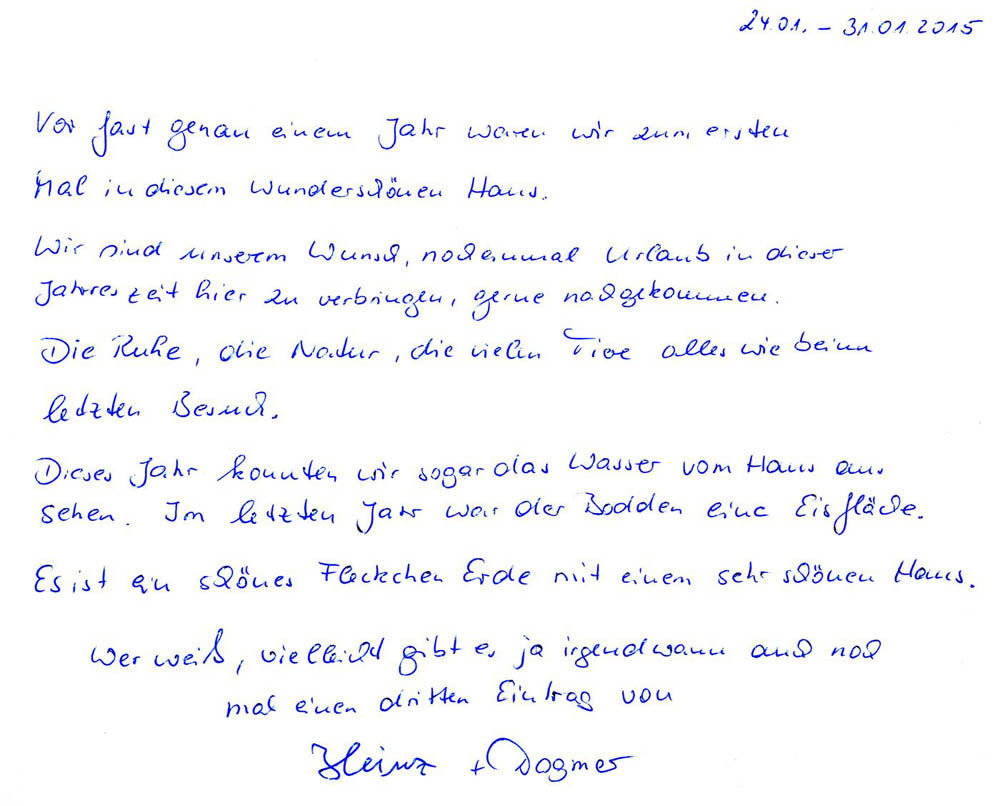 24.01. - 31.01.2015
Vor fast genau einem Jahr waren wir zum ersten
Mal in diesem wunderschönen Haus.
Wir sind unserem Wunsch, nocheinmal Urlaub in dieser
Jahreszeit hier zu verbringen, gerne nachgekommen.
Die Ruhe, die Natur, die vielen Tiere alles wie beim
letzten Besuch.
Dieses Jahr konnten wir sogar das Wasser vom Haus aus
sehen. Im letzten Jahr war der Bodden eine Eisfläche.
Es ist ein schönes Fleckchen Erde mit einem sehr schönen Haus.
Wer weiß, vielleicht gibt es ja irgendwann auch noch
mal einen dritten Eintrag von
Heinz + Dagmar